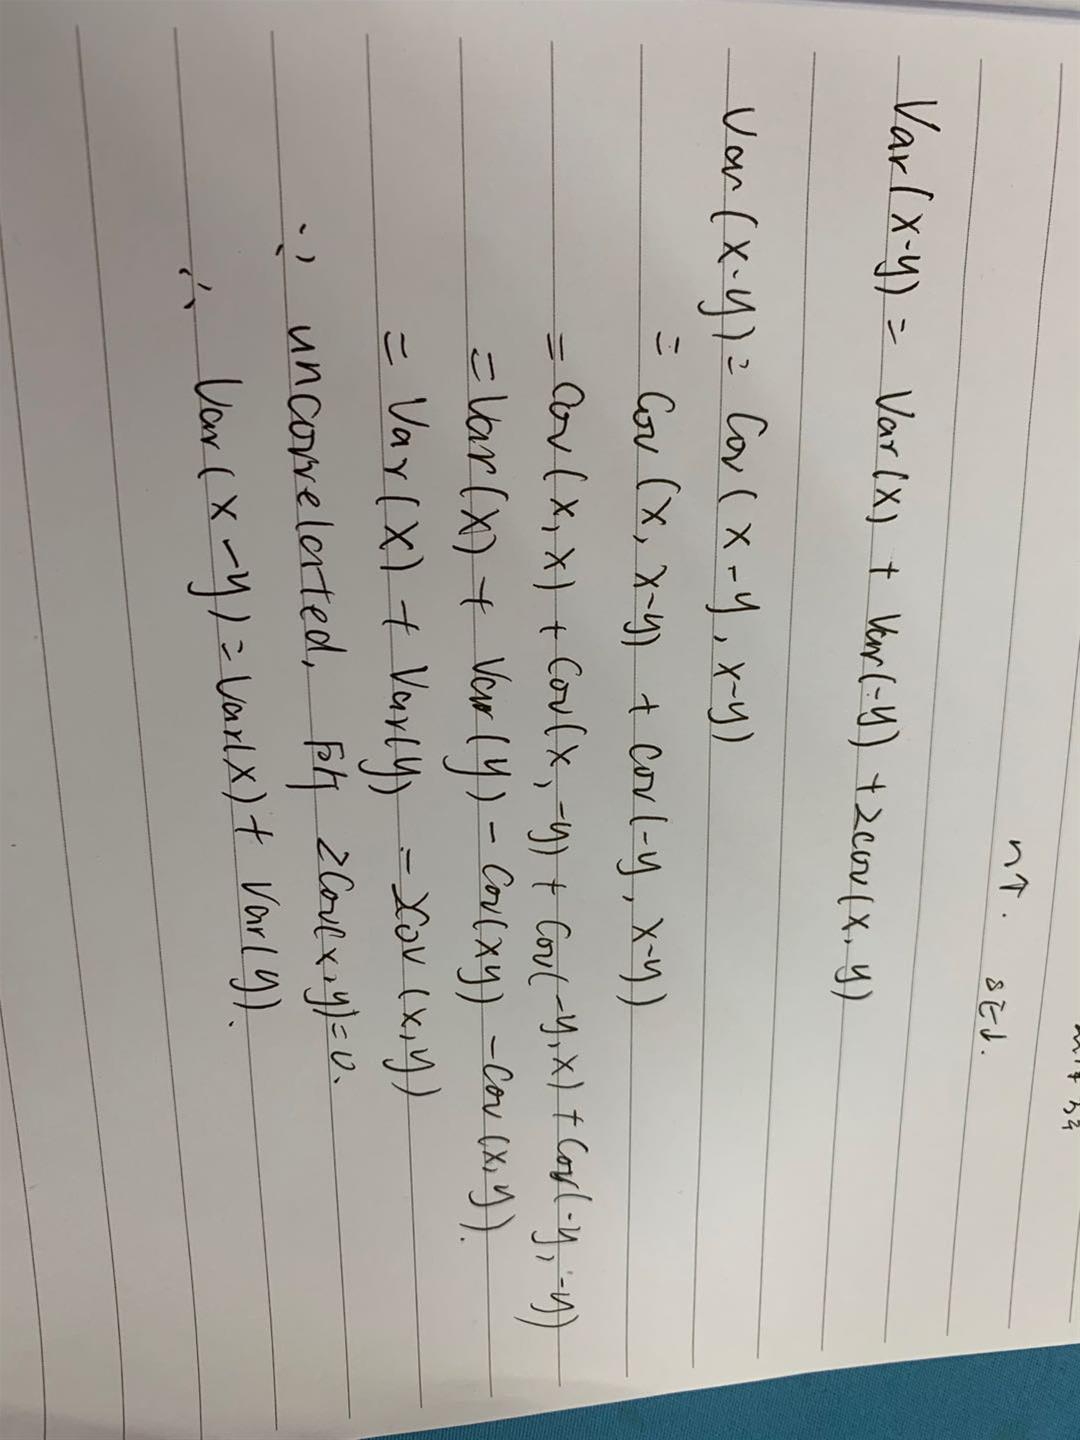 n↑. sε↓.
Var(x-y) = Var(x) + Var(-y) + 2cov(x, y)
Var(x-y) = Cov(x-y, x-y)
= Cov(x, x-y) + Cov(-y, x-y)
= Cov(x, x) + Cov(x, -y) + Cov(-y, x) + Cov(-y, -y)
= Var(x) + Var(y) - Cov(xy) - Cov(x, y).
= Var(x) + Var(y) - 2Cov(x, y)
∵ uncorrelated, 2Cov(x, y) = 0.
∴ Var(x-y) = Var(x) + Var(y).